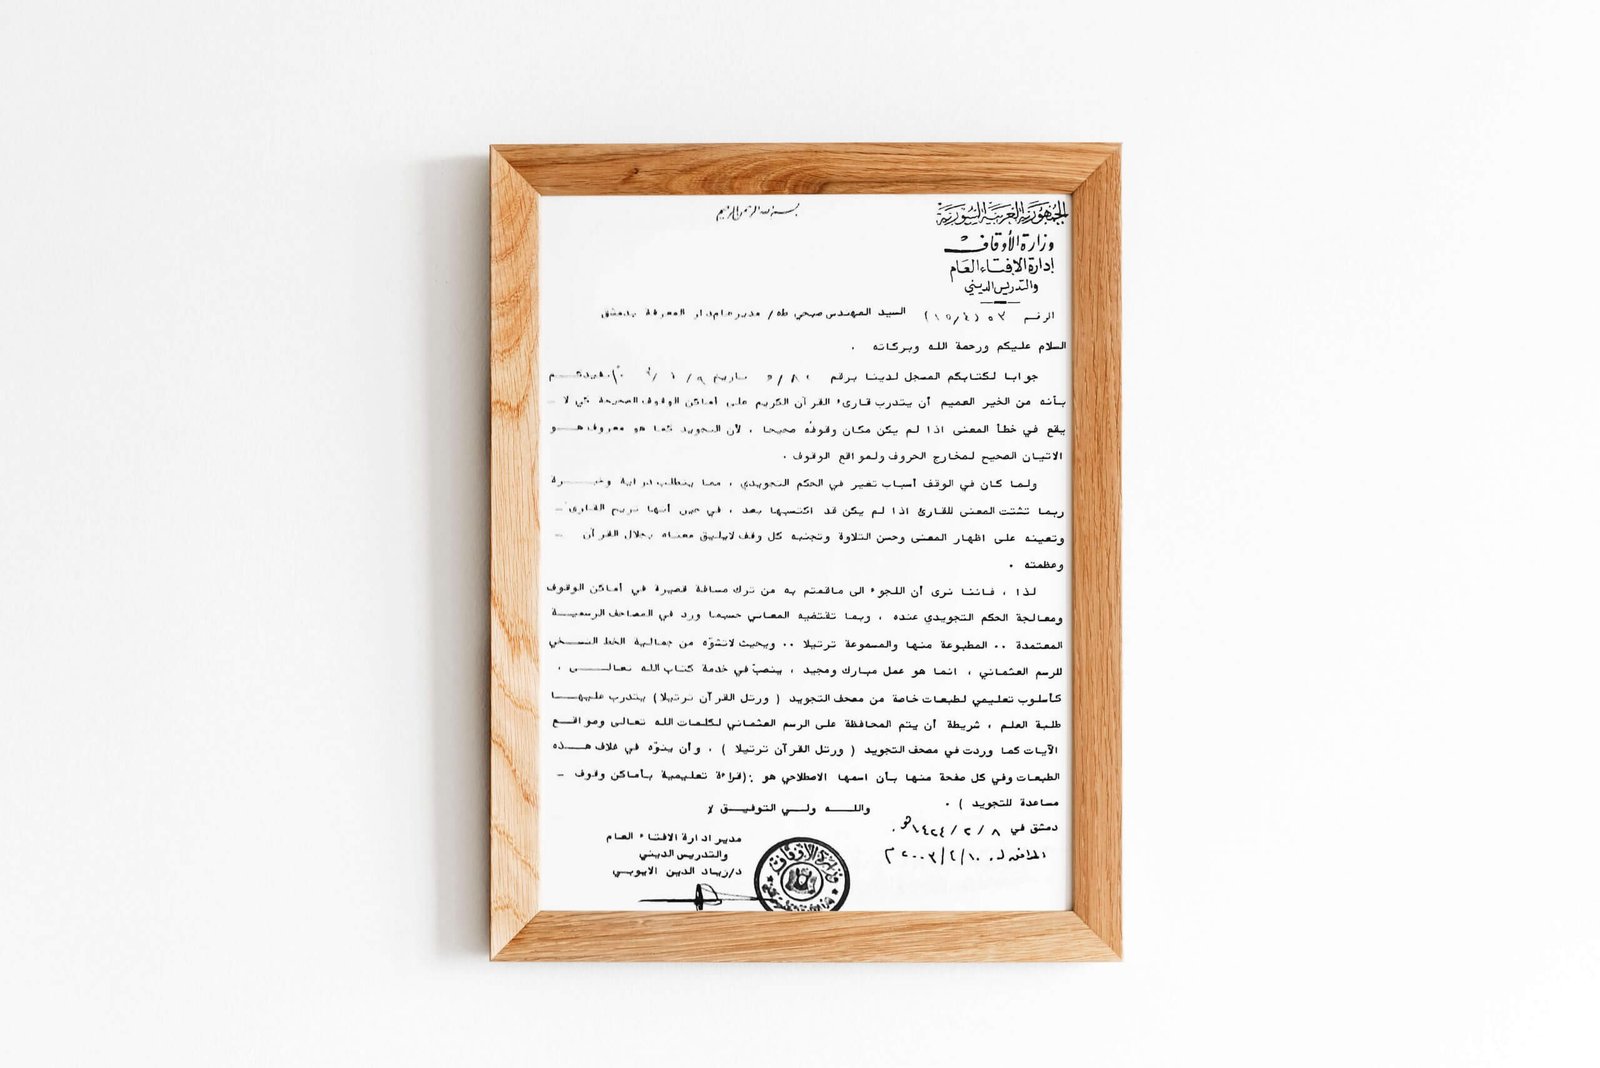 بسم الله الرحمن الرحيم
الجمهورية العربية السورية
وزارة الأوقاف
إدارة الافتاء العام
والتدريس الديني
الرقم ٥٣ (١٥/٤)
السيد المهندس صبحي طه/ مدير عام دار المعرفة بدمشق
السلام عليكم ورحمة الله وبركاته .
جوابا لكتابكم المسجل لدينا برقم تاريخ نفيدكم
بأنه من الخير العميم أن يتدرب قارىء القرآن الكريم على أماكن الوقوف الصحيحة كي لا -
يقع في خطأ المعنى اذا لم يكن مكان وقوفه صحيحا ، لأن التجويد كما هو معروف هو
الاتيان الصحيح لمخارج الحروف ولمواقع الوقوف .
ولما كان في الوقف أسباب تغير في الحكم التجويدي ، مما يتطلب دراية وخبرة
ربما تشتت المعنى للقارئ اذا لم يكن قد اكتسبها بعد ، في حين أنها تريح القارئ -
وتعينه على اظهار المعنى وحسن التلاوة وتجنبه كل وقف لايليق معناه بجلال القرآن -
وعظمته .
لذا ، فاننا نرى أن اللجوء الى ماقمتم به من ترك مسافة قصيرة في أماكن الوقوف
ومعالجة الحكم التجويدي عنده ، وبما تقتضيه المعاني حسبما ورد في المصاحف الرسمية
المعتمدة .. المطبوعة منها والمسموعة ترتيلا .. وبحيث لاتشوّه من جمالية الخط النسخي
للرسم العثماني ، انما هو عمل مبارك ومجيد ، ينصبّ في خدمة كتاب الله تعالى ،
كأسلوب تعليمي لطبعات خاصة من مصحف التجويد ( ورتل القرآن ترتيلا ) يتدرب عليها
طلبة العلم ، شريطة أن يتم المحافظة على الرسم العثماني لكلمات الله تعالى ومواقع
الآيات كما وردت في مصحف التجويد ( ورتل القرآن ترتيلا ) ، وأن ينوّه في غلاف هذه
الطبعات وفي كل صفحة منها بأن اسمها الاصطلاحي هو :(قراءة تعليمية بأماكن وقوف -
مساعدة للتجويد ) .
والله ولي التوفيق
دمشق في ٨ / ٢ / ١٤٢٤هـ .
الموافق لـ ١٠/٤/٢٠٠٣ م
مدير ادارة الافتاء العام
والتدريس الديني
د/زياد الدين الايوبي
وزارة الاوقاف